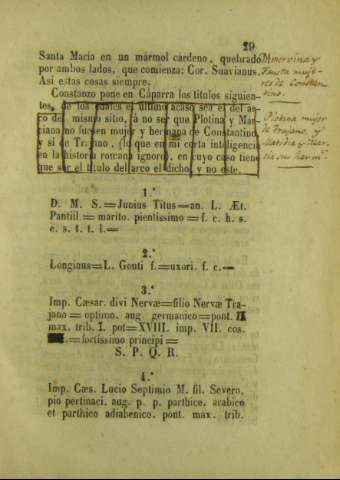 29
Santa María en un mármol cárdeno, quebrado
por ambos lados, que comienza: Cor. Suavianus.
Así estas cosas siempre.
Constanzo pone en Cáparra los títulos siguien-
tes, de los cuales el último acaso sea el del ar-
co del mismo sitio, á no ser que Plotina y Mar-
ciana no fuesen muger y hermana de Constantino,
y sí de Trajano, (lo que en mi corta inteligencia
en la historia romana ignoro), en cuyo caso tiene
que ser el título del arco el dicho, y no este.
Minervina y
Fausta muje-
res de Constan-
tino.
Plotina mujer
de Trajano, y
Matidia y Mar-
cia su herm.ª
1.ª
D. M. S.=Junius Titus=an. L. Æt.
Pantiil.=marito. pientissimo=f. c. h. s.
e. s. t. t. l.=
2.ª
Longinus=L. Gouti f.=uxori. f. c.=
3.ª
Imp. Cæsar. divi Nervæ=filio Nervæ Tra-
jano=optimo. aug germanico=pont.
max. trib. I. pot=XVIII. imp. VII. cos.
=fortissimo principi=
S. P. Q. R.
4.ª
Imp. Cæs. Lucio Septimio M. fil. Severo,
pio pertinaci. aug. p. p. parthico. arabico
et parthico adiabenico. pont. max. trib.